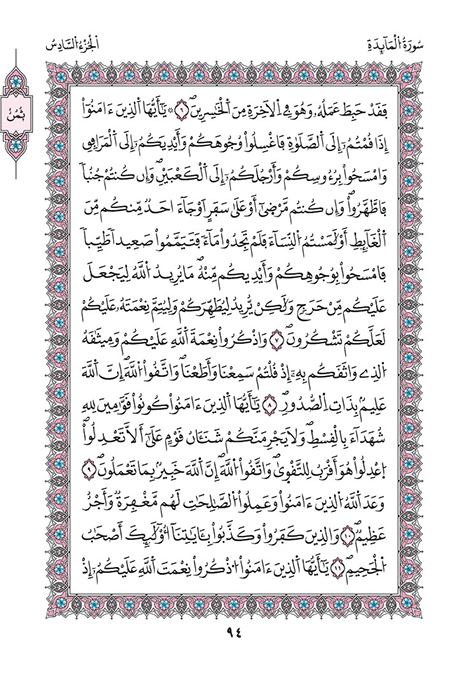 سُورَةُ الْمَآئِدَةِ
الْجُزْءُ السَّادِسُ
ثُمُنُ
فَقَدْ حَبِطَ عَمَلُهُۥ وَهُوَ فِے اِ۬لَاخِرَةِ مِنَ اَ۬لْخَٰسِرِينَۖ ٦ * يَٰٓأَيُّهَا اَ۬لذِينَ ءَامَنُوٓاْ
إِذَا قُمْتُمُۥٓ إِلَي اَ۬لصَّلَوٰةِ فَاغْسِلُواْ وُجُوهَكُمْ وَأَيْدِيَكُمُۥٓ إِلَي اَ۬لْمَرَافِقِ
وَامْسَحُواْ بِرُءُوسِكُمْ وَأَرْجُلَكُمُۥٓ إِلَي اَ۬لْكَعْبَيْنِۖ وَإِن كُنتُمْ جُنُباٗ
فَاطَّهَّرُواْۖ وَإِن كُنتُم مَّرْض۪يٰٓ أَوْ عَلَيٰ سَفَرٍ اَوْ جَآءَ احَدٞ مِّنكُم مِّنَ
اَ۬لْغَآئِطِ أَوْ لَٰمَسْتُمُ اُ۬لنِّسَآءَ فَلَمْ تَجِدُواْ مَآءٗ فَتَيَمَّمُواْ صَعِيداٗ طَيِّباٗ
فَامْسَحُواْ بِوُجُوهِكُمْ وَأَيْدِيكُم مِّنْهُۖ مَا يُرِيدُ اُ۬للَّهُ لِيَجْعَلَ
عَلَيْكُم مِّنْ حَرَجٖ وَلَٰكِنْ يُّرِيدُ لِيُطَهِّرَكُمْ وَلِيُتِمَّ نِعْمَتَهُۥ عَلَيْكُمْ
لَعَلَّكُمْ تَشْكُرُونَۖ ٧ وَاذْكُرُواْ نِعْمَةَ اَ۬للَّهِ عَلَيْكُمْ وَمِيثَٰقَهُ
اُ۬لذِے وَاثَقَكُم بِهِۦٓ إِذْ قُلْتُمْ سَمِعْنَا وَأَطَعْنَاۖ وَاتَّقُواْ اُ۬للَّهَۖ إِنَّ اَ۬للَّهَ
عَلِيمُۢ بِذَاتِ اِ۬لصُّدُورِۖ ٨ يَٰٓأَيُّهَا اَ۬لذِينَ ءَامَنُواْ كُونُواْ قَوَّٰمِينَ لِلهِ
شُهَدَآءَ بِالْقِسْطِۖ وَلَا يَجْرِمَنَّكُمْ شَنَـَٔانُ قَوْمٍ عَلَيٰٓ أَلَّا تَعْدِلُواْۖ
اُ۪عْدِلُواْ هُوَ أَقْرَبُ لِلتَّقْو۪يٰۖ وَاتَّقُواْ اُ۬للَّهَۖ إِنَّ اَ۬للَّهَ خَبِيرُۢ بِمَا تَعْمَلُونَۖ ٩
وَعَدَ اَ۬للَّهُ اُ۬لذِينَ ءَامَنُواْ وَعَمِلُواْ اُ۬لصَّٰلِحَٰتِ لَهُم مَّغْفِرَةٞ وَأَجْرٌ
عَظِيمٞۖ ١٠ وَالذِينَ كَفَرُواْ وَكَذَّبُواْ بِـَٔايَٰتِنَآ أُوْلَٰٓئِكَ أَصْحَٰبُ
اُ۬لْجَحِيمِۖ ١١ يَٰٓأَيُّهَا اَ۬لذِينَ ءَامَنُواْ اُ۟ذْكُرُواْ نِعْمَتَ اَ۬للَّهِ عَلَيْكُمُۥٓ إِذْ
٩٤